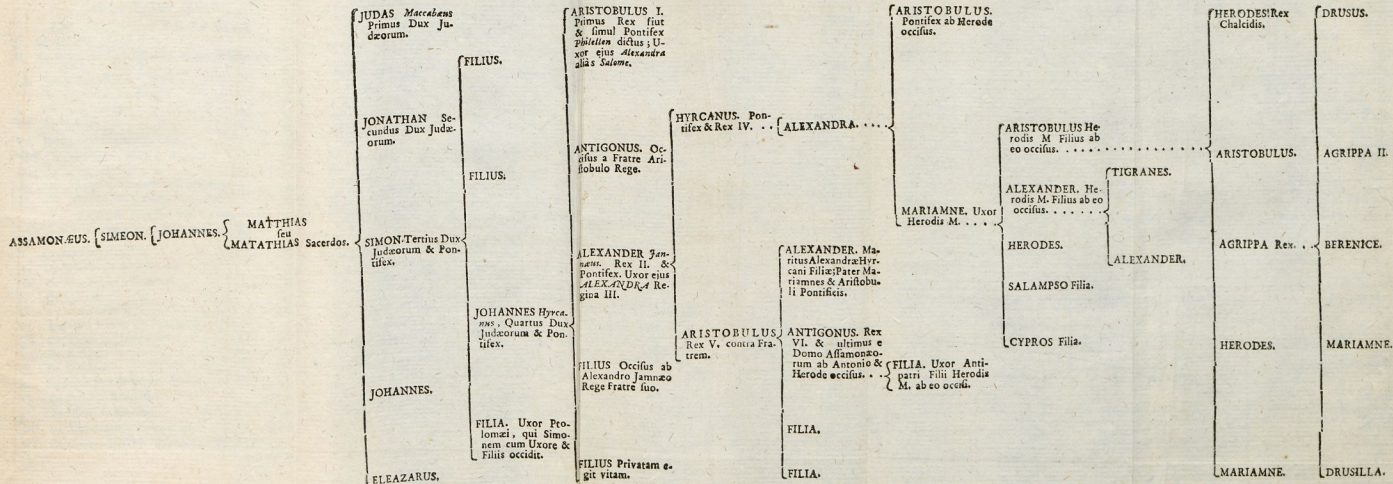 ASSAMONÆUS.
SIMEON.
JOHANNES.
MATTHIAS
seu
MATATHIAS Sacerdos.
JUDAS Maccabæus
Primus Dux Ju-
dæorum.
JONATHAN Se-
cundus Dux Judæ-
orum.
SIMON Tertius Dux
Judæorum & Pon-
tifex.
JOHANNES.
ELEAZARUS.
FILIUS.
FILIUS.
JOHANNES Hyrca-
nus, Quartus Dux
Judæorum & Pon-
tifex.
FILIA. Uxor Pto-
lomæi, qui Simo-
nem cum Uxore &
Filiis occidit.
ARISTOBULUS I.
Primus Rex fiut
& simul Pontifex
Philellen dictus; U-
xor ejus Alexandra
aliàs Salome.
ANTIGONUS. Oc-
cisus a Fratre Ari-
stobulo Rege.
ALEXANDER Jan-
næus. Rex II. &
Pontifex. Uxor ejus
ALEXANDRA Re-
gina III.
FILIUS Occisus ab
Alexandro Jamnæo
Rege Fratre suo.
FILIUS Privatam e-
git vitam.
HYRCANUS. Pon-
tifex & Rex IV. . .
ARISTOBULUS
Rex V. contra Fra-
trem.
ALEXANDRA. . . . .
ALEXANDER. Ma-
ritus Alexandræ Hyr-
cani Filiæ; Pater Ma-
riamnes & Aristobu-
li Pontificis.
ANTIGONUS. Rex
VI. & ultimus e
Domo Assamonæo-
rum ab Antonio &
Herode occisus. . .
FILIA.
FILIA.
ARISTOBULUS.
Pontifex ab Herode
occisus.
MARIAMNE. Uxor
Herodis M. . . .
FILIA. Uxor Anti-
patri Filii Herodis
M. ab eo occisi.
ARISTOBULUS He-
rodis M Filius ab
eo occisus. . . . . . . . . . . . . . . . . . .
ALEXANDER. He-
rodis M. Filius ab eo
occisus. . . . . . .
HERODES.
SALAMPSO Filia.
CYPROS Filia.
TIGRANES.
ALEXANDER.
HERODES Rex
Chalcidis.
ARISTOBULUS.
AGRIPPA Rex. . .
HERODES.
MARIAMNE.
DRUSUS.
AGRIPPA II.
BERENICE.
MARIAMNE.
DRUSILLA.